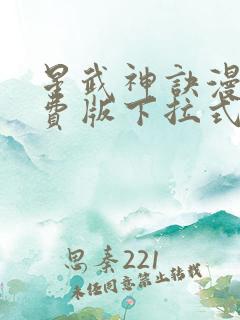 星武神訣漫
費版下拉式
思秦221
未经同意禁止转载